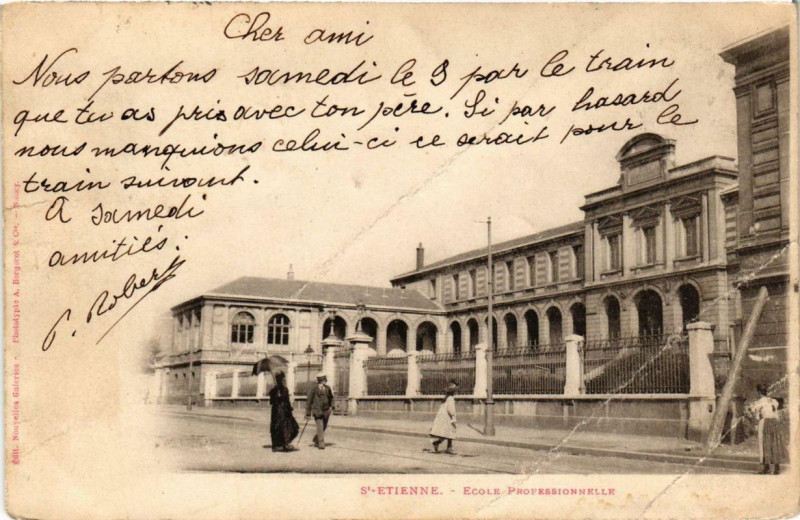 Cher ami
Nous partons samedi le 9 par le train
que tu as pris avec ton père. Si par hasard
nous manquions celui-ci ce serait pour le
train suivant.
A samedi
amitiés.
P. Robert
Édit. Nouvelles Galeries - Phototypie A. Bergeret & Cie. - Nancy
St-ETIENNE. - ECOLE PROFESSIONNELLE